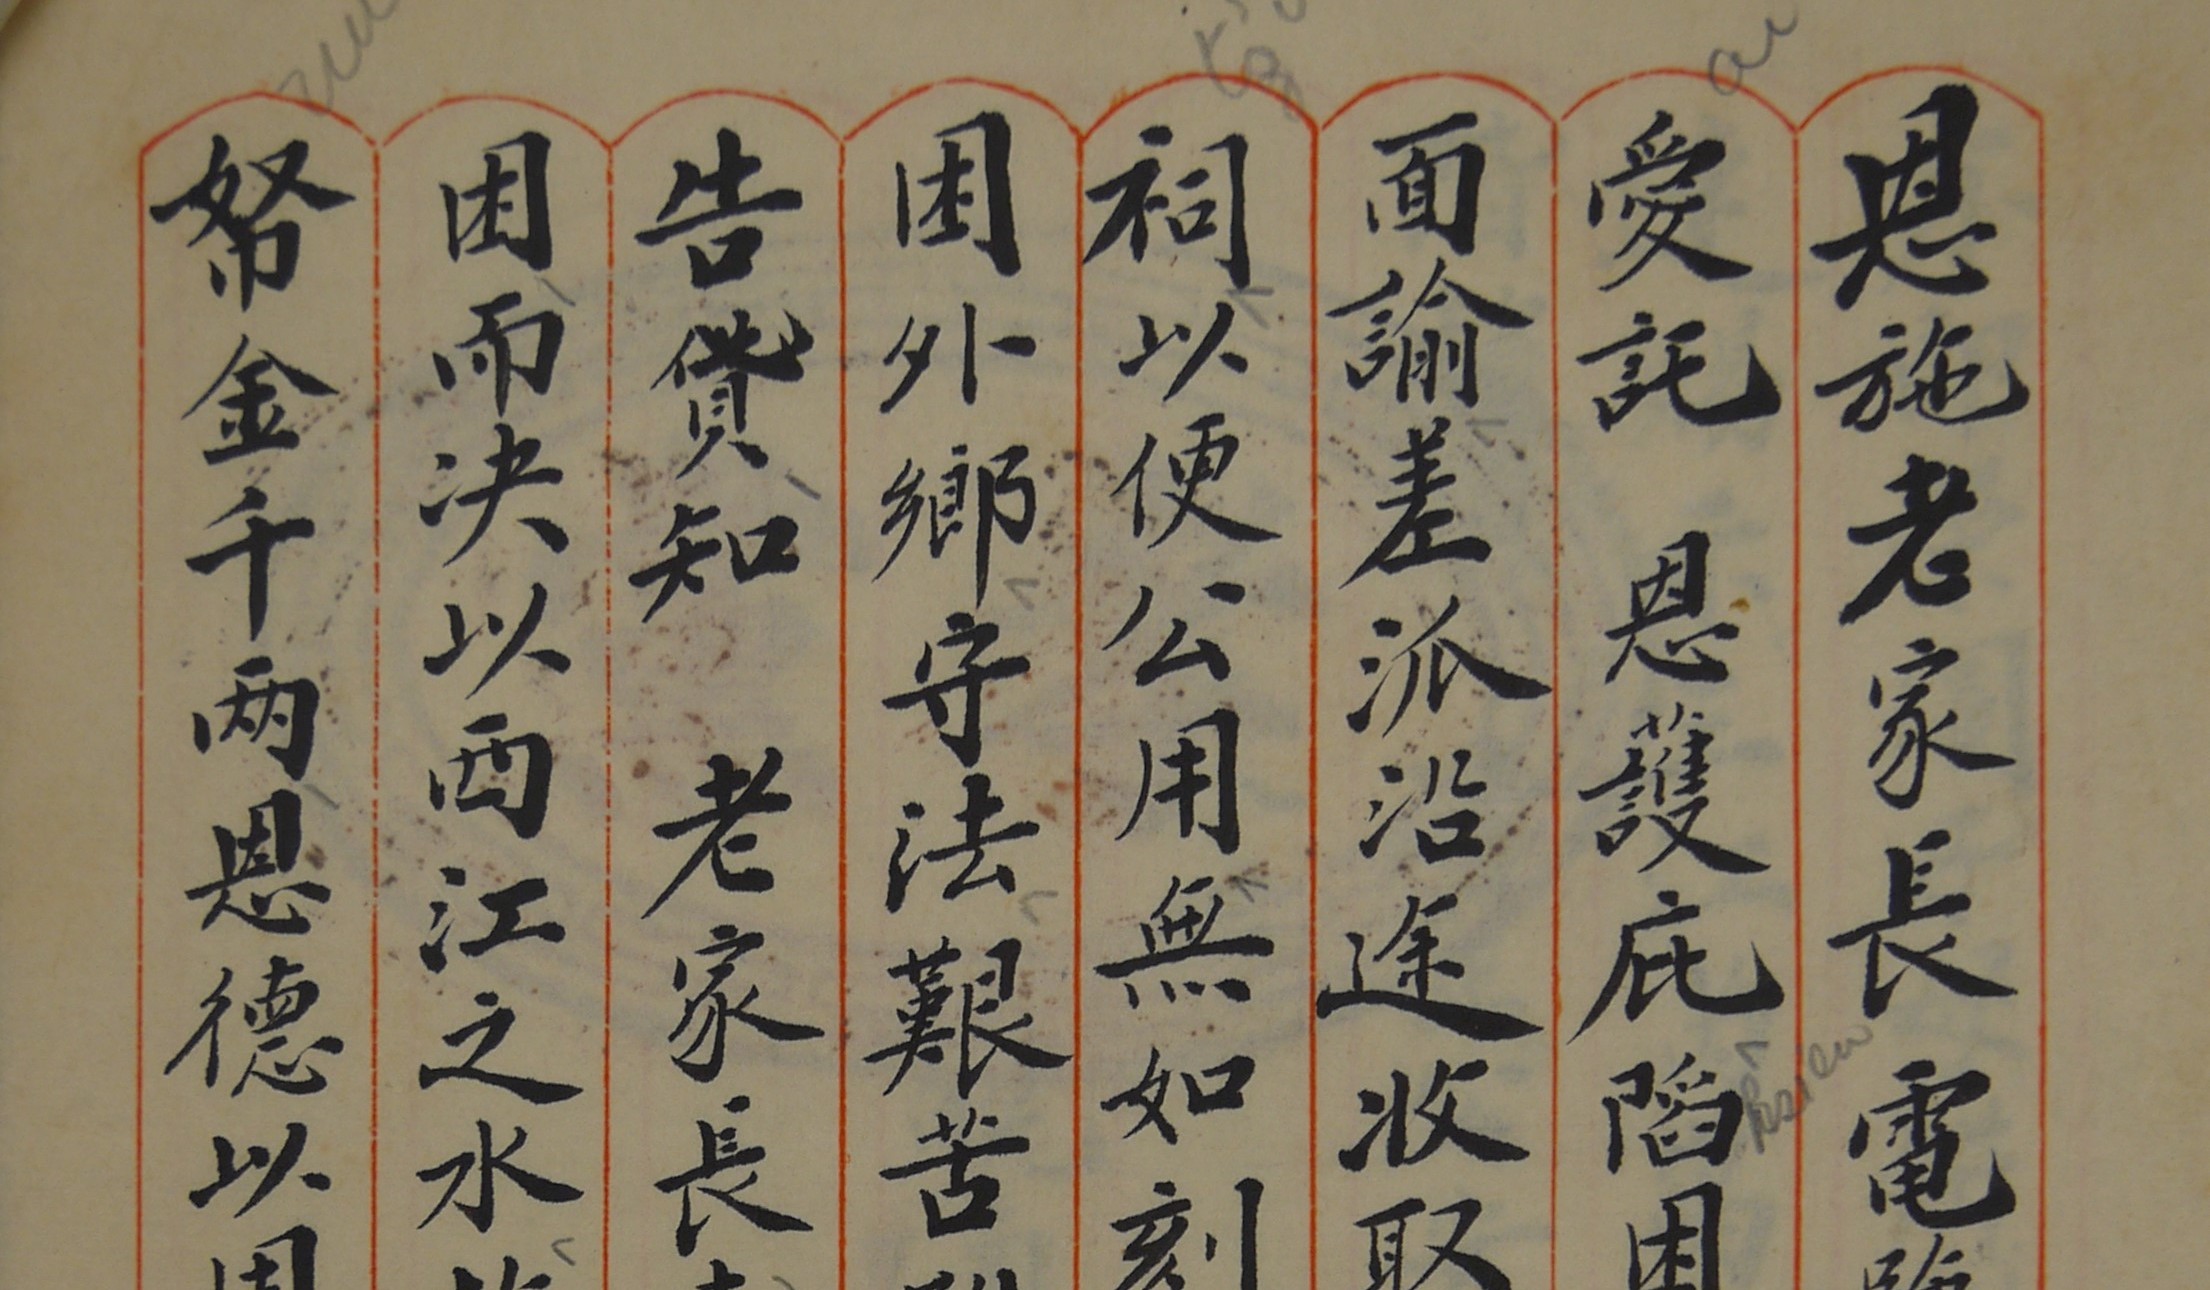 恩施老家長電
愛託 恩護庇陷困
面諭差派沿途收取
祠以便公用無如刻
困外鄉守法艱苦
告貸知 老家長
困而决以西江之水
帑金千两恩德以困
hsien